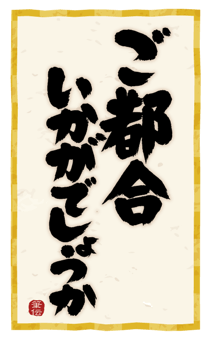 ご都合
いかがでしょうか
筆伝